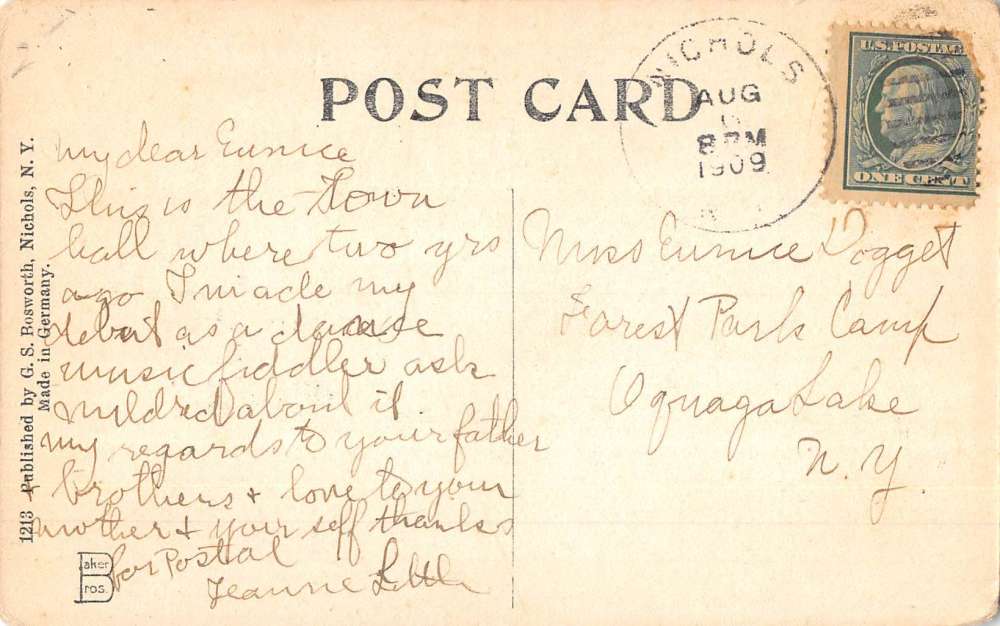 POST CARD
NICHOLS
AUG
8 PM
1909
N. Y.
U.S. POSTAGE
ONE CENT
My dear Eunice
This is the Town
hall where two yrs
ago I made my
debut as a dance
music fiddler ask
Mildred about it.
My regards to your father
+ brothers + love to your
mother + your self thanks
for Postal
Jeanne Little
Miss Eunice Dogget
Forest Park Camp
Oquaga Lake
N. Y.
1213 Published by G. S. Bosworth, Nichols, N. Y.
Made in Germany.
Baker
Bros.